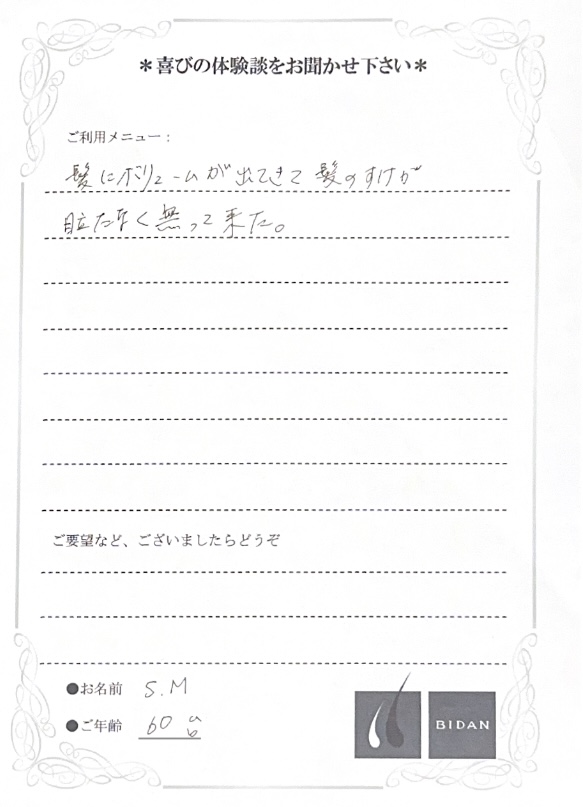 ＊喜びの体験談をお聞かせ下さい＊
ご利用メニュー：
髪にボリュームが出てきて髪のすけが
目立たなく無って来た。
ご要望など、ございましたらどうぞ
●お名前 S.M
●ご年齢 60
BIDAN